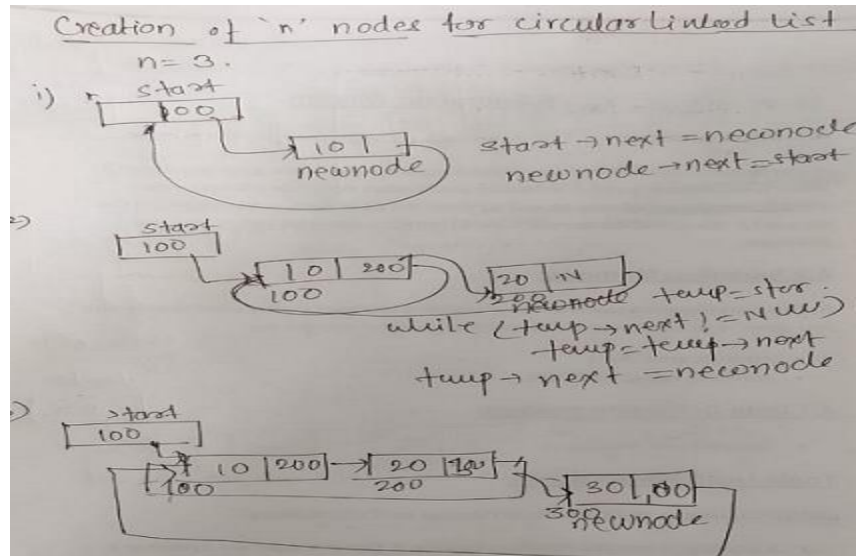 Creation of 'n' nodes for circular Linked List
n= 3.
i) start
100
10
newnode
start → next = newnode
newnode → next = start
start
100
10 200
100
20 N
newnode
temp = star
while (temp → next != NULL)
temp = temp → next
temp → next = newnode
start
100
10 200 20 100
100 200
30 100
300
newnode